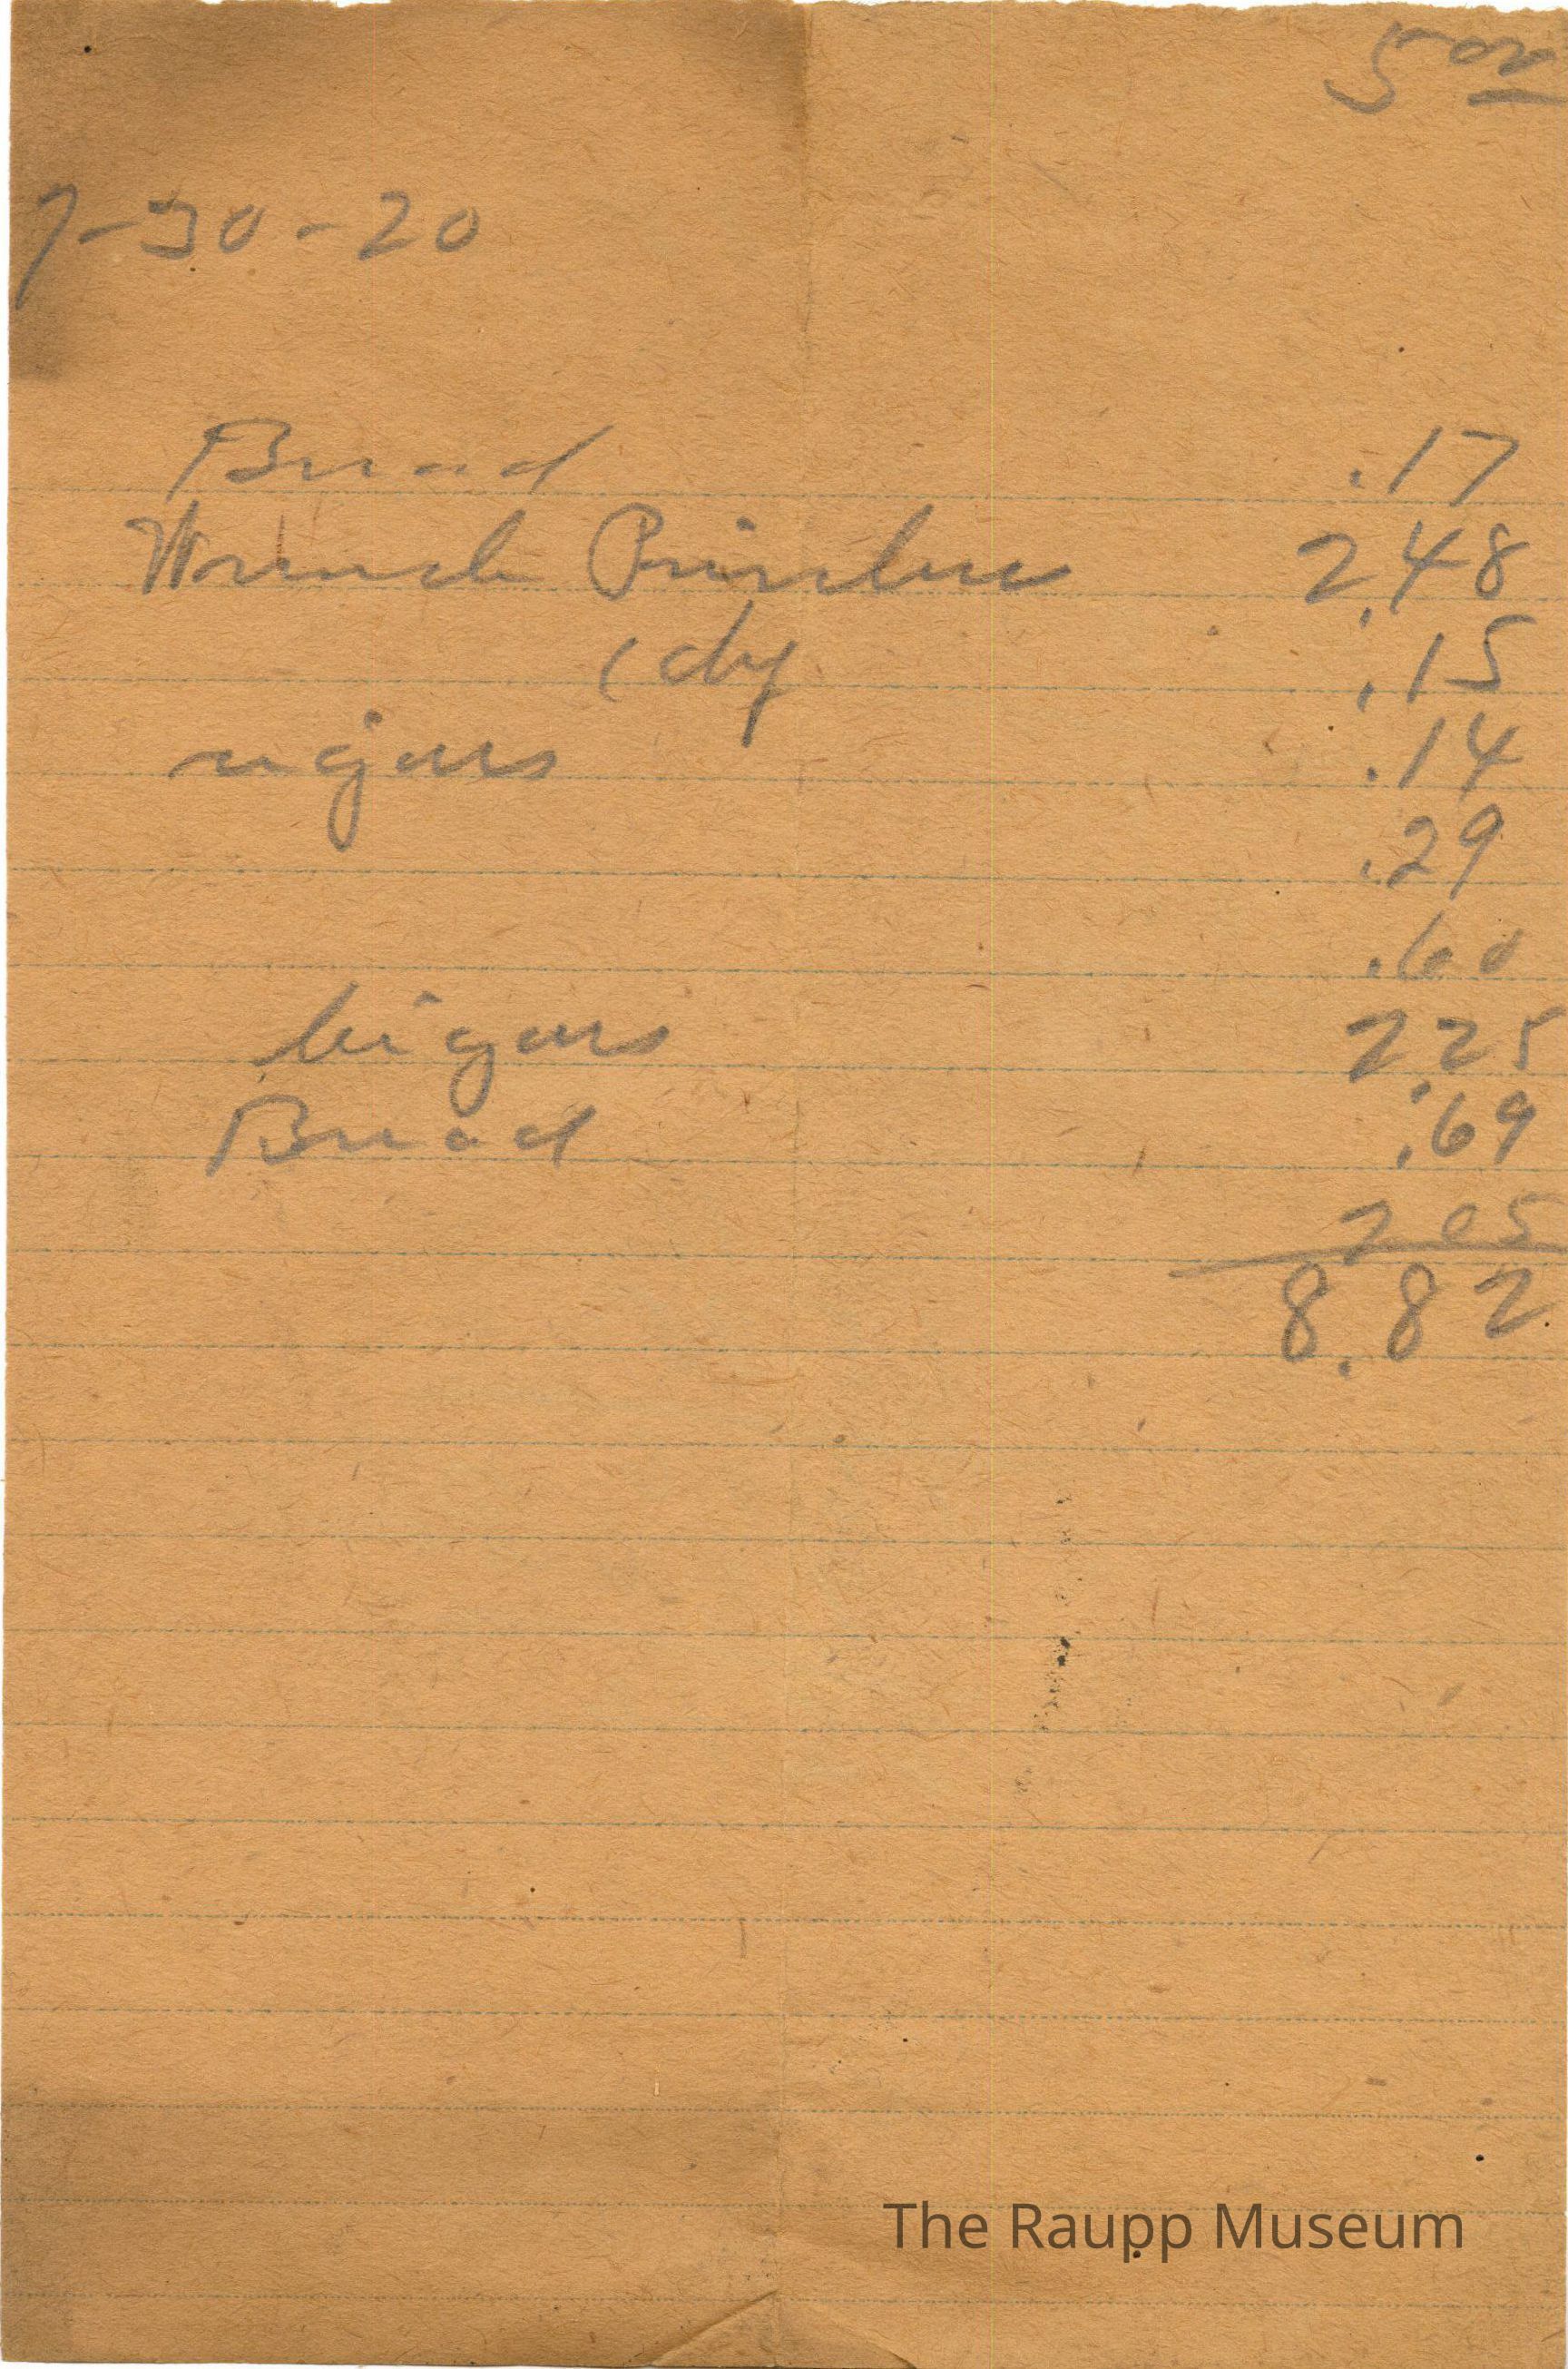 5 00
7-30-20
Bread .17
Wrench 2.48
.15
cigars .14
.29
.60
Cigars 2.25
Bread .69
2 05
8.82
The Raupp Museum